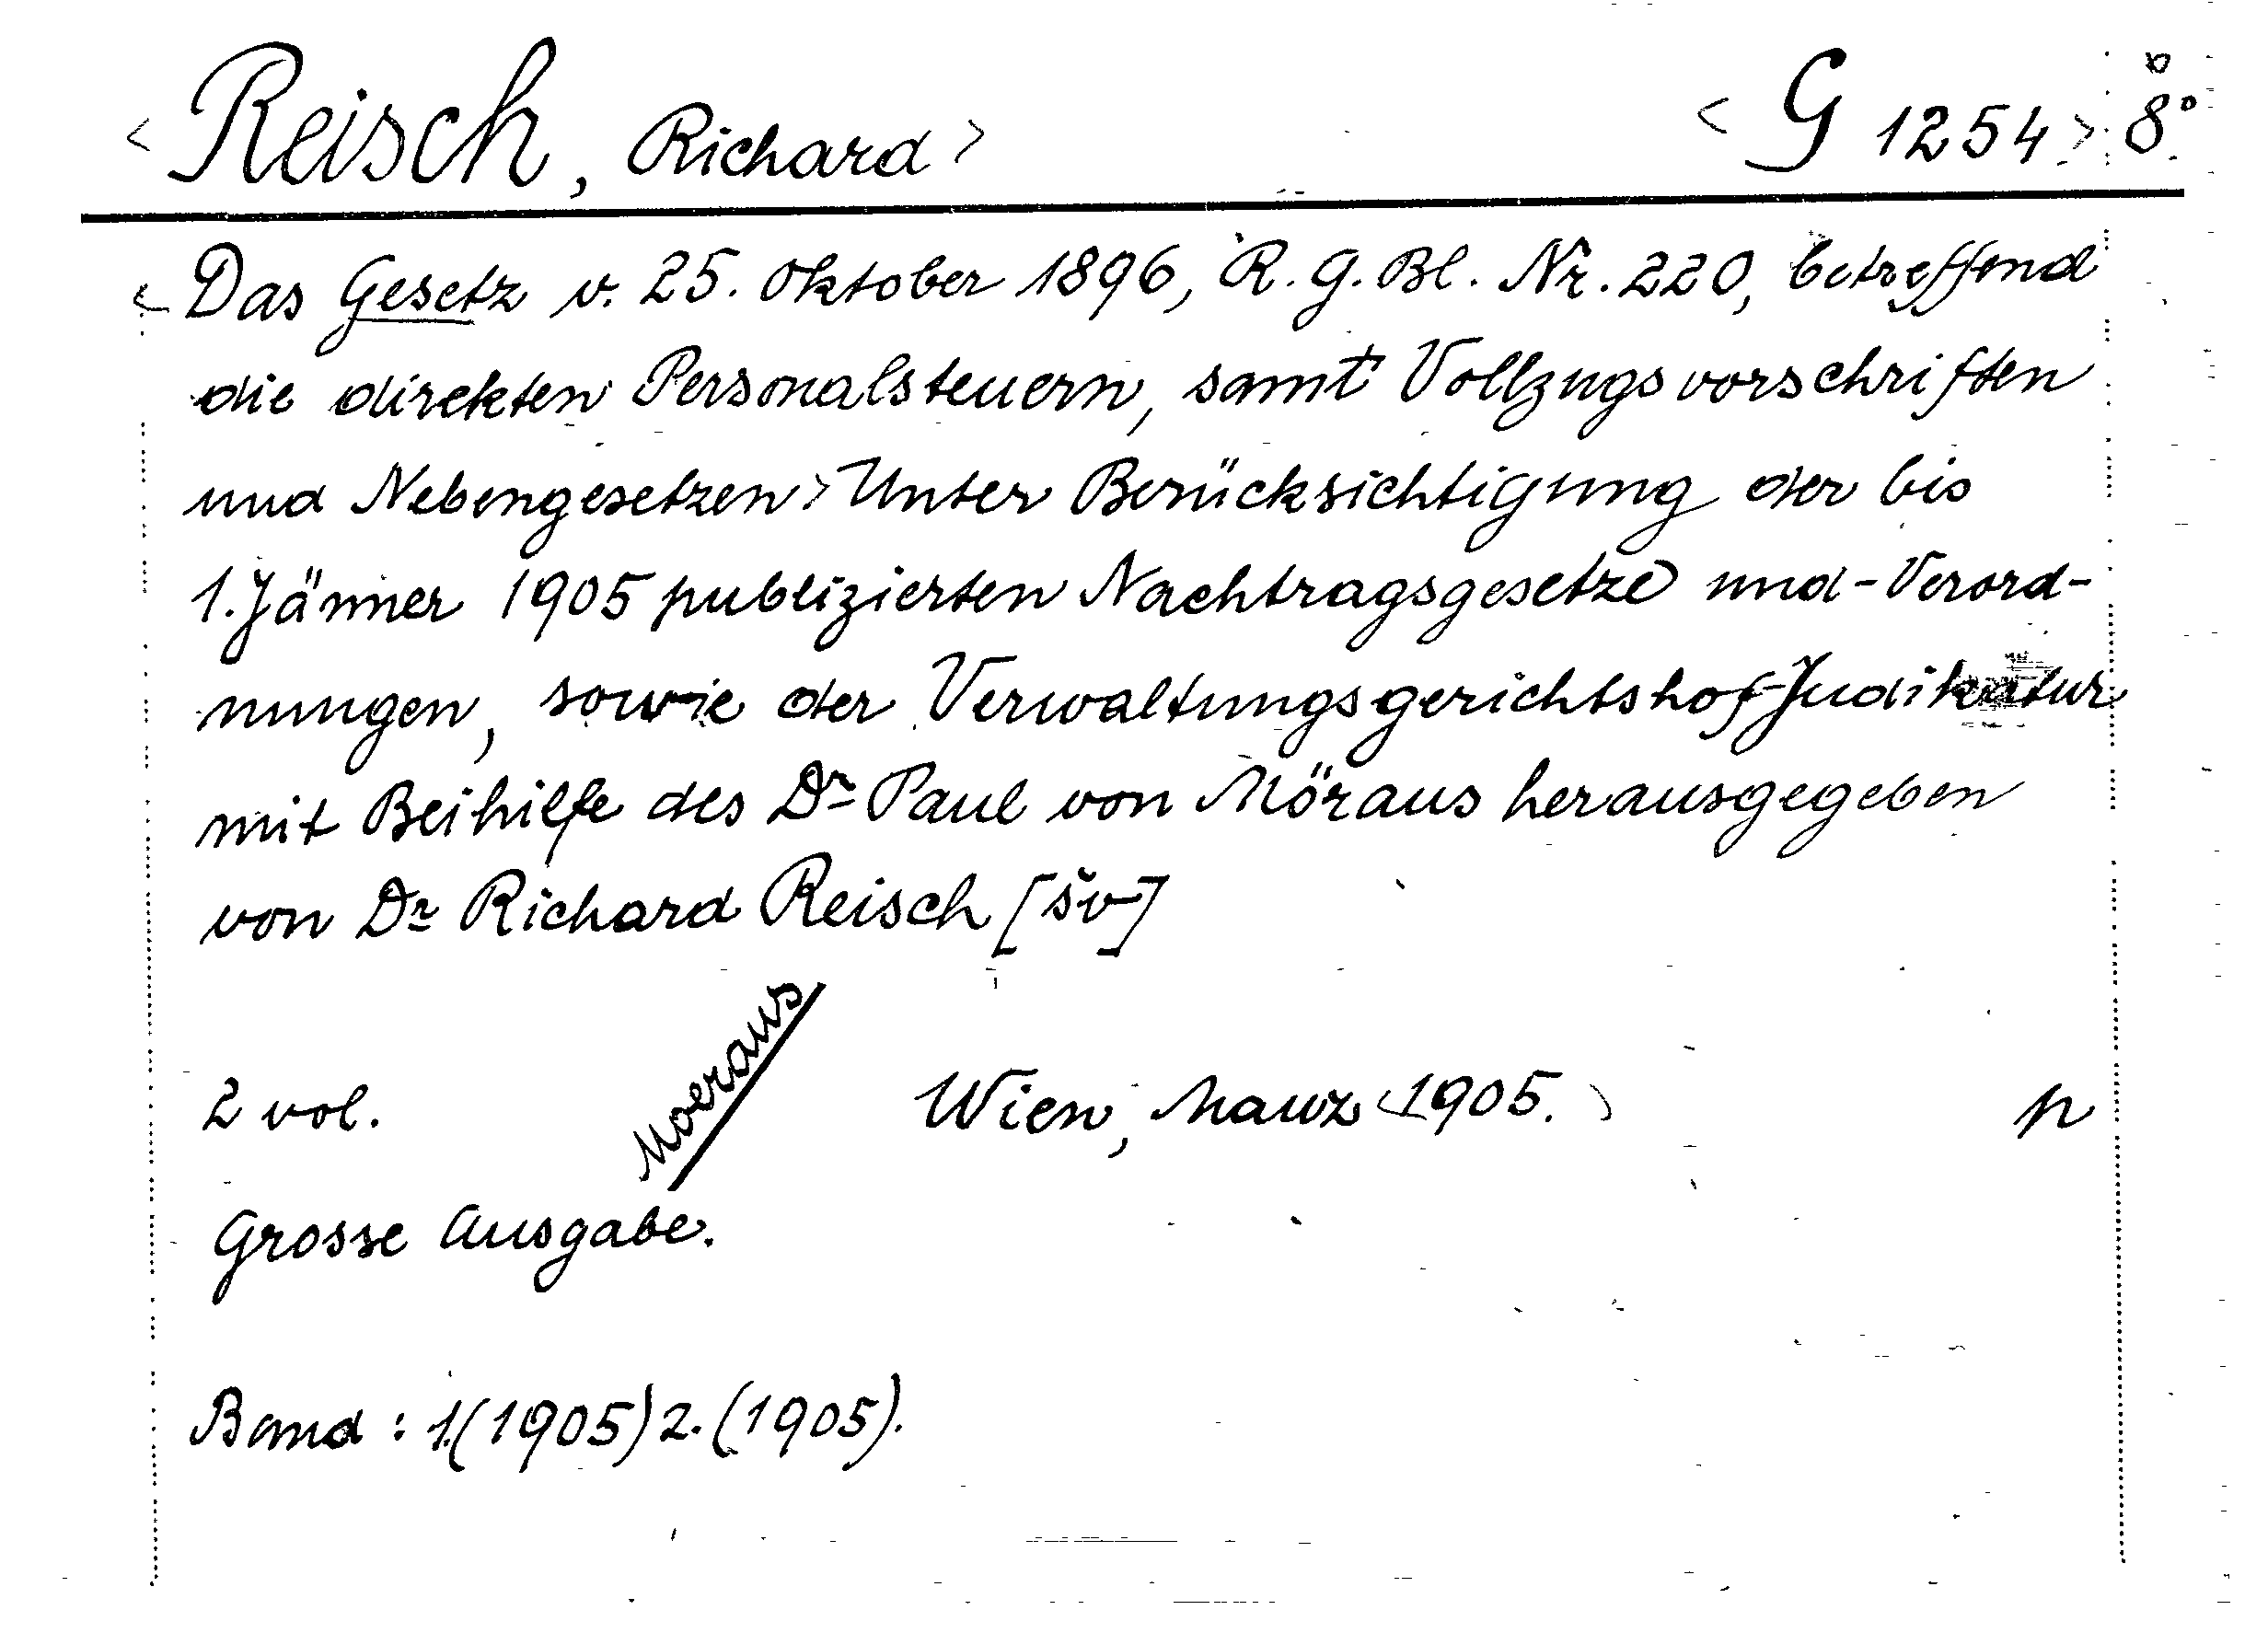 <Reisch, Richard> <G 1254> 8°
<Das Gesetz v. 25. Oktober 1896, R.G.Bl. Nr. 220, betreffend
die direkten Personalsteuern, samt Vollzugsvorschriften
und Nebengesetzen> Unter Berücksichtigung der bis
1. Jänner 1905 publizierten Nachtragsgesetze und -Verord-
nungen, sowie der Verwaltungsgerichtshof-Judikatur
mit Beihilfe des Dr Paul von Möraus herausgegeben
von Dr Richard Reisch [šv]
Moeraus
2 vol. Wien, Manz <1905.> p
Grosse Ausgabe.
Band: 1.(1905) 2.(1905).